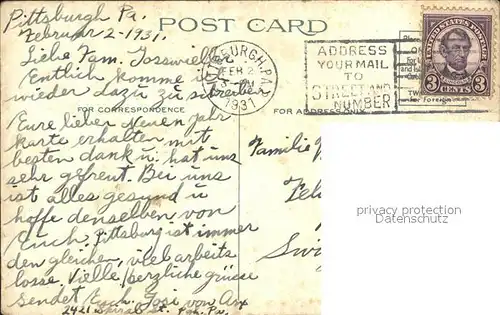 Pittsburgh Pa.
Februar 2-1931.
Liebe Fam. Josswieler
Entlich komme ich
wieder dazu zu schreiben
Eure lieber Neuen jahr
karte erhalten mit
besten dank u. hat uns
sehr gefreut. Bei uns
ist alles gesund u
hoffe denselben von
Euch, Pittsburg ist immer
den gleichen, viel arbeits
losse. Vielle herzliche grüsse
sendet Euch. Josi von Arx
2421 St. Pgh. Pa.
POST CARD
FOR CORRESPONDENCE
FOR ADDRESS ONLY
BURGH, PA.
FEB 2
1931
ADDRESS
YOUR MAIL
TO
STREET AND
NUMBER
UNITED STATES POSTAGE
LINCOLN
3 CENTS 3
for Foreign
Familie
privacy protection
(www.ansichtskarten-center.de)